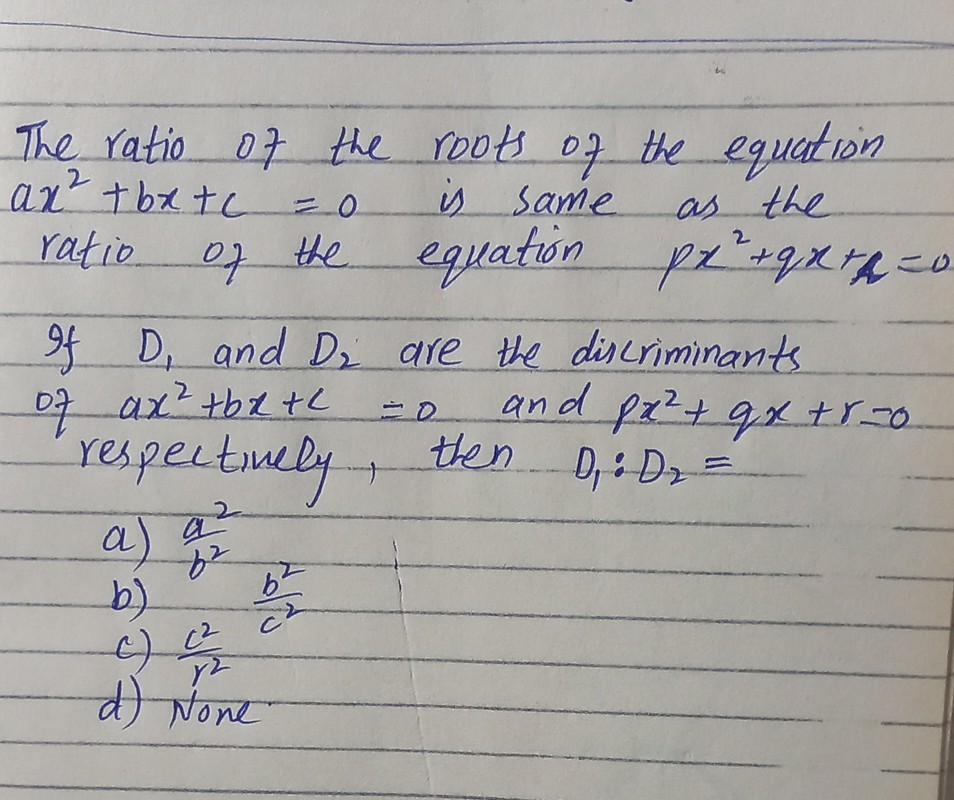 The ratio of the roots of the equation
ax² + bx + c = 0 is same as the
ratio of the equation px² + qx + r = 0
If D₁ and D₂ are the discriminants
of ax² + bx + c = 0 and px² + qx + r = 0
respectively, then D₁ : D₂ =
a) a²/b²
b) b²/c²
c) c²/r²
d) None